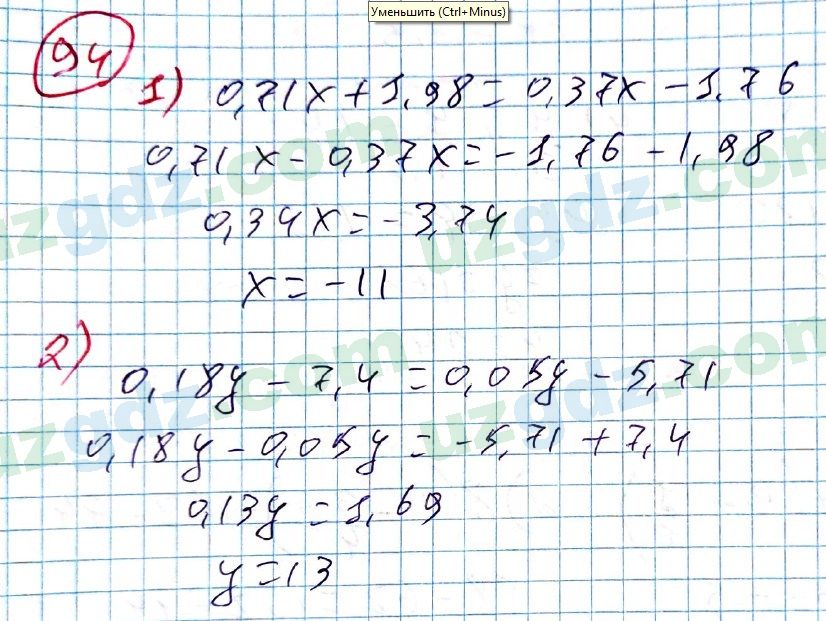 Уменьшить (Ctrl+Minus)
94
1) 0,71x + 1,98 = 0,37x - 1,76
0,71x - 0,37x = -1,76 - 1,98
0,34x = -3,74
x = -11
2) 0,18y - 7,4 = 0,05y - 5,71
0,18y - 0,05y = -5,71 + 7,4
0,13y = 1,69
y = 13
uzgdz.com
uzgdz.com
uzgdz.com
uzgdz.com